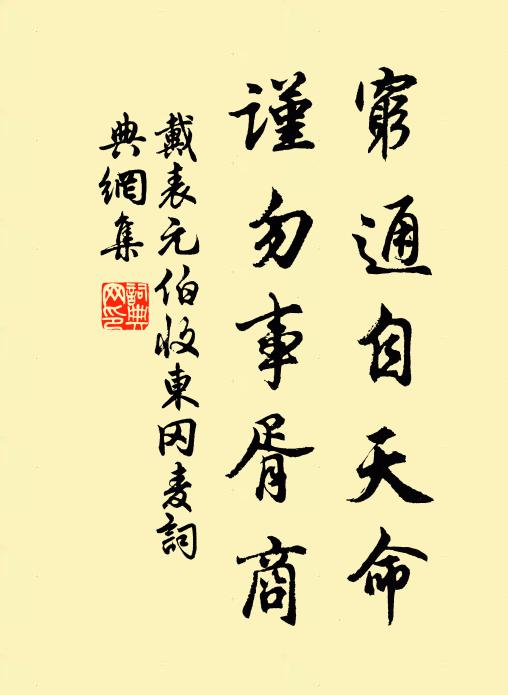 窮通自天命
謹勿事胥商
戴表元伯收東冈麦詞
典網集
詞典网印